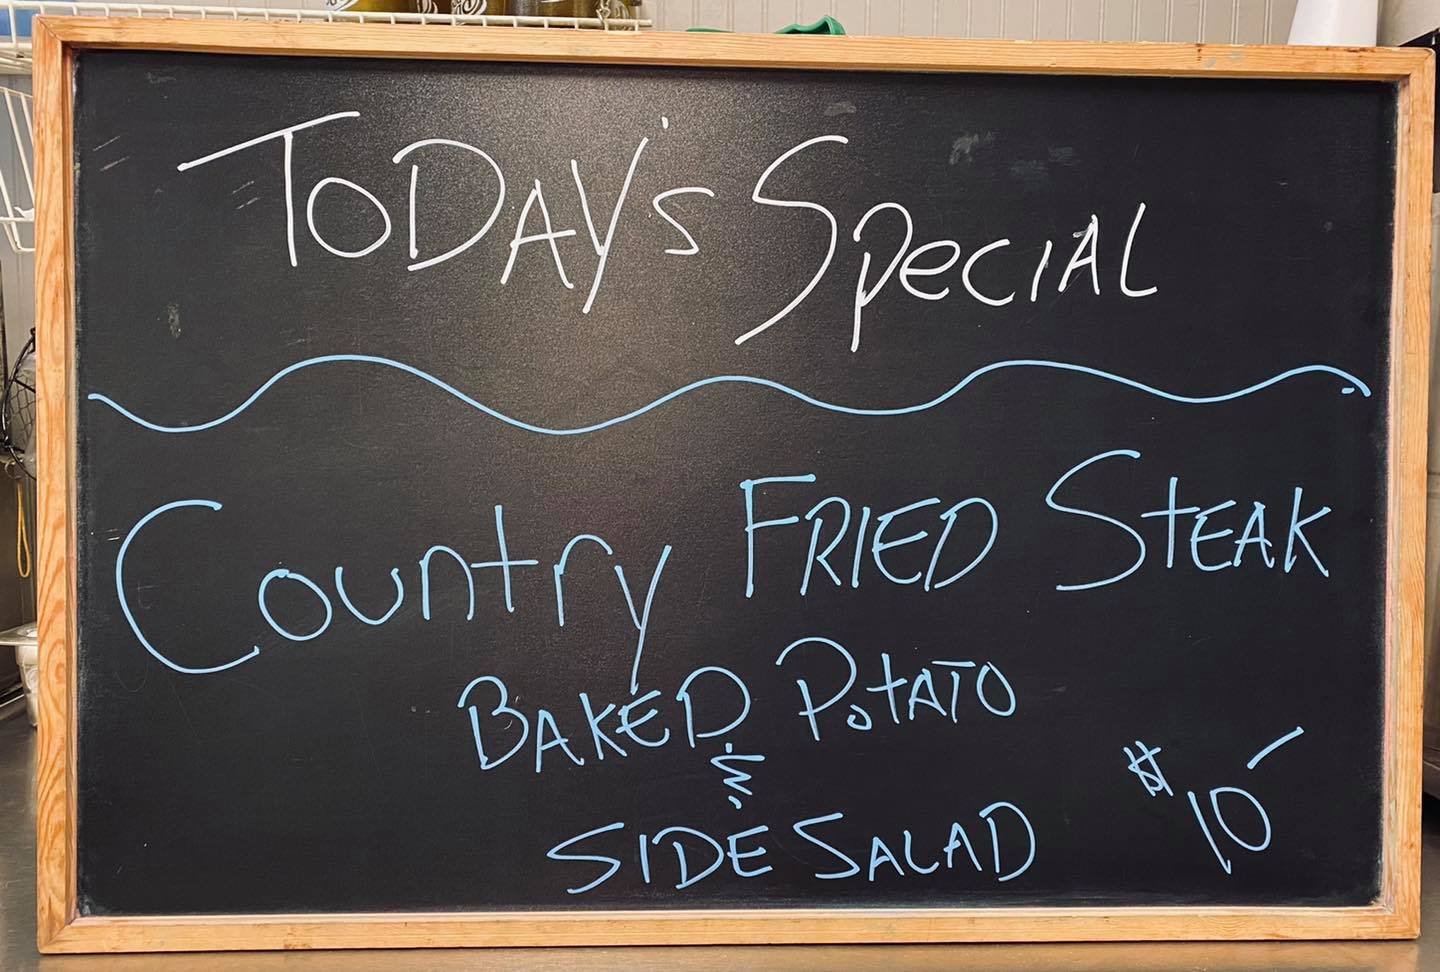 TODAY's SPeCIAL
Country FRIED STEAK
BAKED POTATO
&
SIDE SALAD
$10-